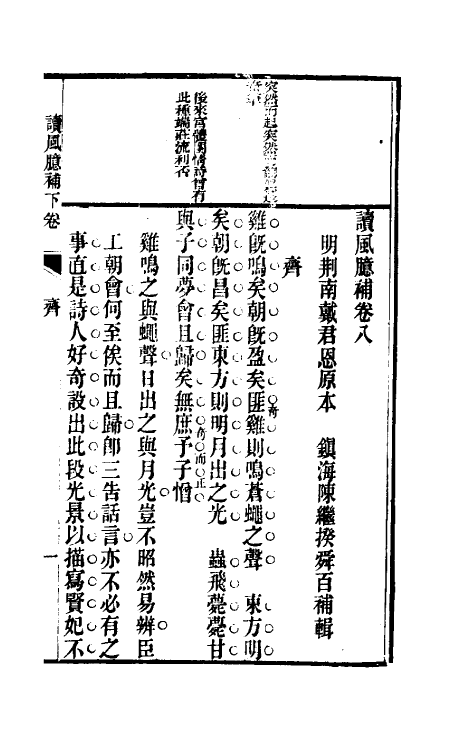 讀風臆補卷八
明荆南戴君恩原本　鎮海陳繼揆舜百補輯
齊
雞旣鳴矣朝旣盈矣匪雞則鳴蒼蠅之聲　東方明
奇
矣朝旣昌矣匪東方則明月出之光　蟲飛薨薨甘
與子同夢會且歸矣無庶予子憎
奇而正
雞鳴之與蠅聲日出之與月光豈不昭然易辨臣
工朝會何至俟而且歸郎三吿話言亦不必有之
事直是詩人好奇設出此段光景以描寫賢妃不
突然而起突然
後來宮體閨情詩曾有
此種端莊流利否
讀風臆補下卷
齊
一